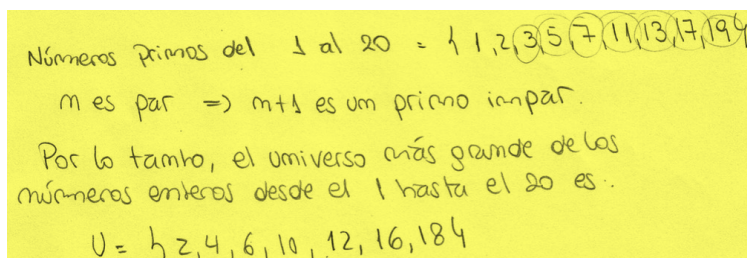 Números primos del 1 al 20 = { 1, 2, 3, 5, 7, 11, 13, 17, 19 }
n es par => n+1 es un primo impar.
Por lo tanto, el universo más grande de los
números enteros desde el 1 hasta el 20 es:
U = { 2, 4, 6, 10, 12, 16, 18 }